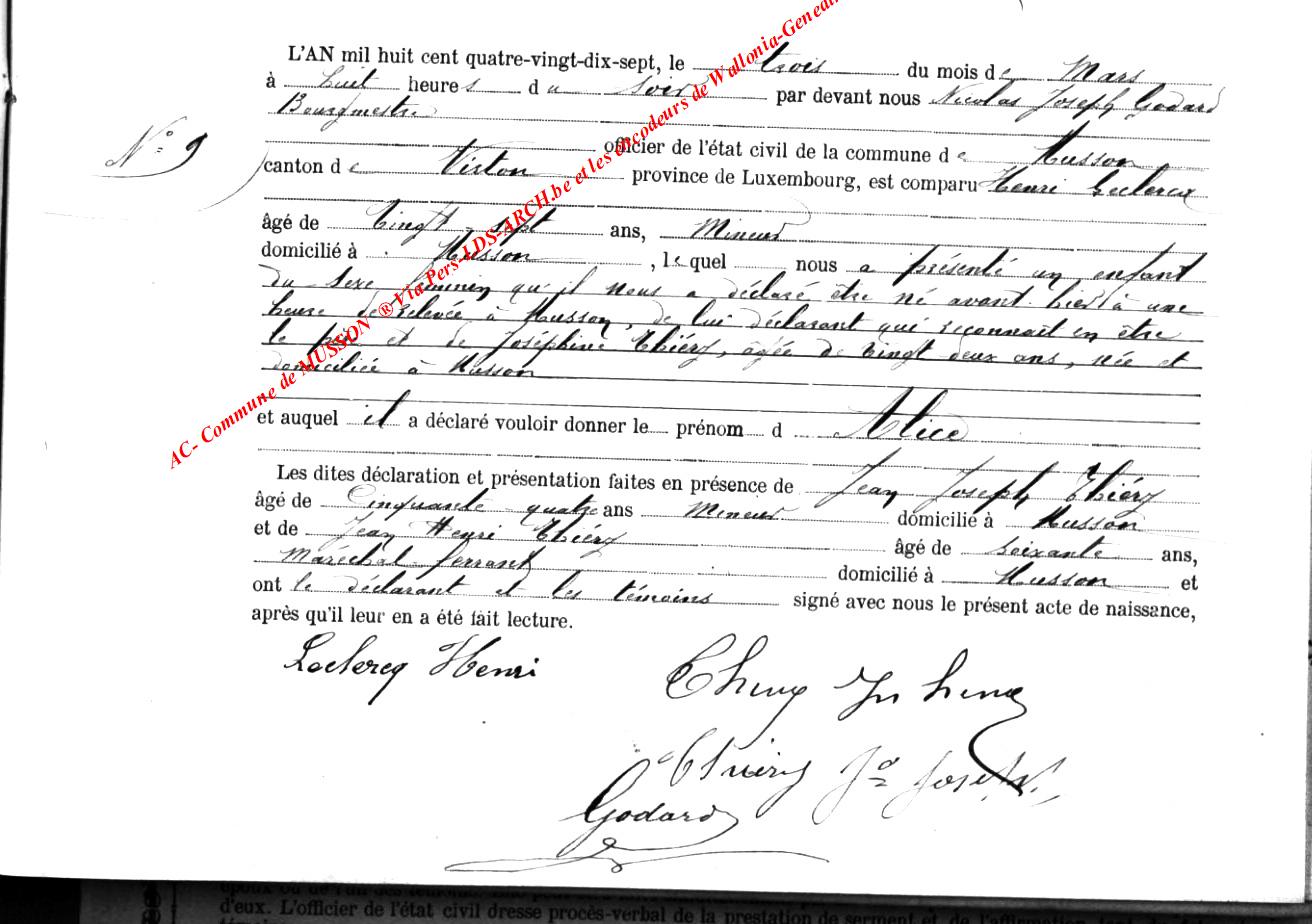 L'AN mil huit cent quatre-vingt-dix-sept, le trois du mois de Mars
à huit heures du soir par devant nous Nicolas Joseph Godard
Bourgmestre
N° 9
officier de l'état civil de la commune de Musson
canton de Virton province de Luxembourg, est comparu Henri Leclercq
âgé de vingt-sept ans, Mineur
domicilié à Musson, lequel nous a présenté un enfant
du sexe féminin qu'il nous a déclaré être né avant-hier à une
heure de relevée à Musson, de lui déclarant qui reconnait en être
le père et de Joséphine Thiéry, âgée de vingt deux ans, née et
domiciliée à Musson
et auquel il a déclaré vouloir donner le prénom d Alice
Les dites déclaration et présentation faites en présence de Jean Joseph Thiéry
âgé de Cinquante quatre ans Mineur domicilié à Musson
et de Jean Henri Thiéry âgé de soixante ans,
Maréchal ferrant domicilié à Musson et
ont le déclarant et les témoins signé avec nous le présent acte de naissance,
après qu'il leur en a été fait lecture.
Leclercq Henri
Thiery Jn henry
Thiéry Jn Joseph
Godard
AC- Commune de MUSSON ® Via Pers-LDS-ARCH.be et les encodeurs de Wallonia-Geneal
époux ou de l'un des témoins
d'eux. L'officier de l'état civil dresse procès-verbal de la prestation de serment et de l'affirmation